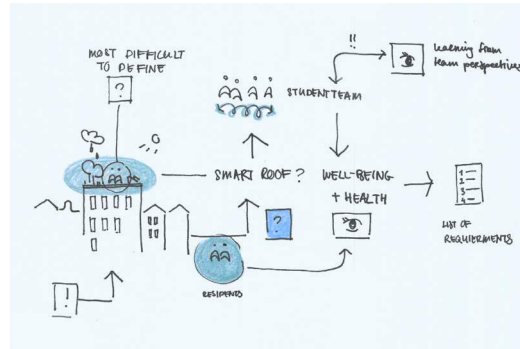 MOST DIFFICULT
TO DEFINE
?
!!
learning from
team perspective
STUDENT TEAM
SMART ROOF?
WELL-BEING
+ HEALTH
?
1
2
3
4
LIST OF
REQUIERMENTS
RESIDENTS
!